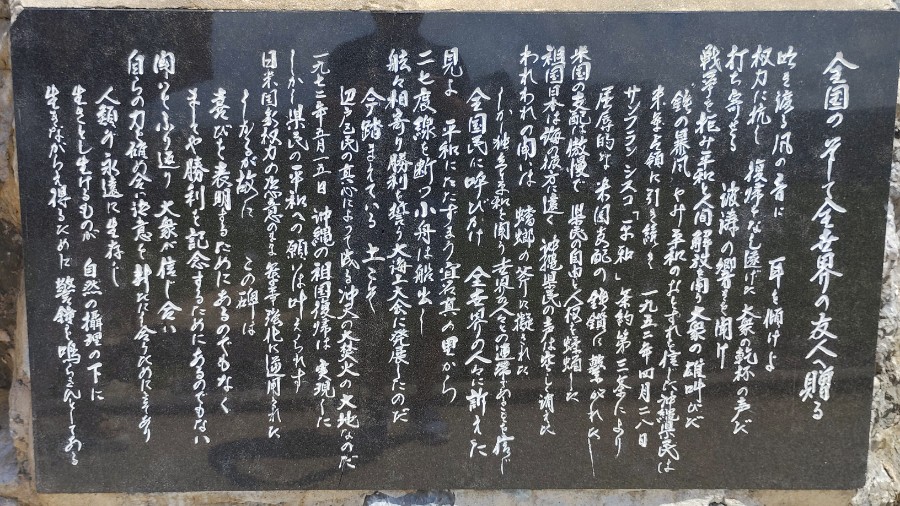 全国のそして全世界の友人へ贈る
吹き渡る風の音に 耳を傾けよ
権力に抗し 復帰をなし遂げた 大衆の乾杯の声だ
打ち寄せる 波濤の響きを聞け
戦争を拒み平和と人間解放を闘う大衆の雄叫びだ
鉄の暴風やみ平和のおとずれを信じた沖縄県民は
米軍占領に引き続き 一九五二年四月二八日
サンフランシスコ「平和」条約第三条により
屈辱的な米国支配の鉄鎖に繋がれた
米国の支配は傲慢で 県民の自由と人権を蹂躙した
祖国日本は海の彼方に遠く 沖縄県民の声は空しく消えた
われわれの闘いは 蟷螂の斧に擬された
しかし独立と平和を闘う世界の人々との連帯あることを信じ
全国民に呼びかけ 全世界の人々に訴えた
見よ 平和にたたずまう宜名真の里から
二七度線を断つ小舟は船出し
舷々相寄り勝利を誓う大海上大会に発展したのだ
今踏まえている 土こそ
辺戸区民の真心によって成る沖天の大焚火の大地なのだ
一九七二年五月一五日 沖縄の祖国復帰は 実現した
しかし県民の平和への願いは叶えられず
日米国家権力の恣意のまま軍事強化に逆用された
しかるが故に この碑は
喜びを表明するためにあるのでもなく
ましてや勝利を記念するためにあるのでもない
闘いをふり返り 大衆が信じ合い
自らの力を確め合い決意を新たにし合うためにこそあり
人類が永遠に生存し
生きとし生けるものが 自然の攝理の下に
生きながらえ得るために 警鐘を鳴らさんとしてある